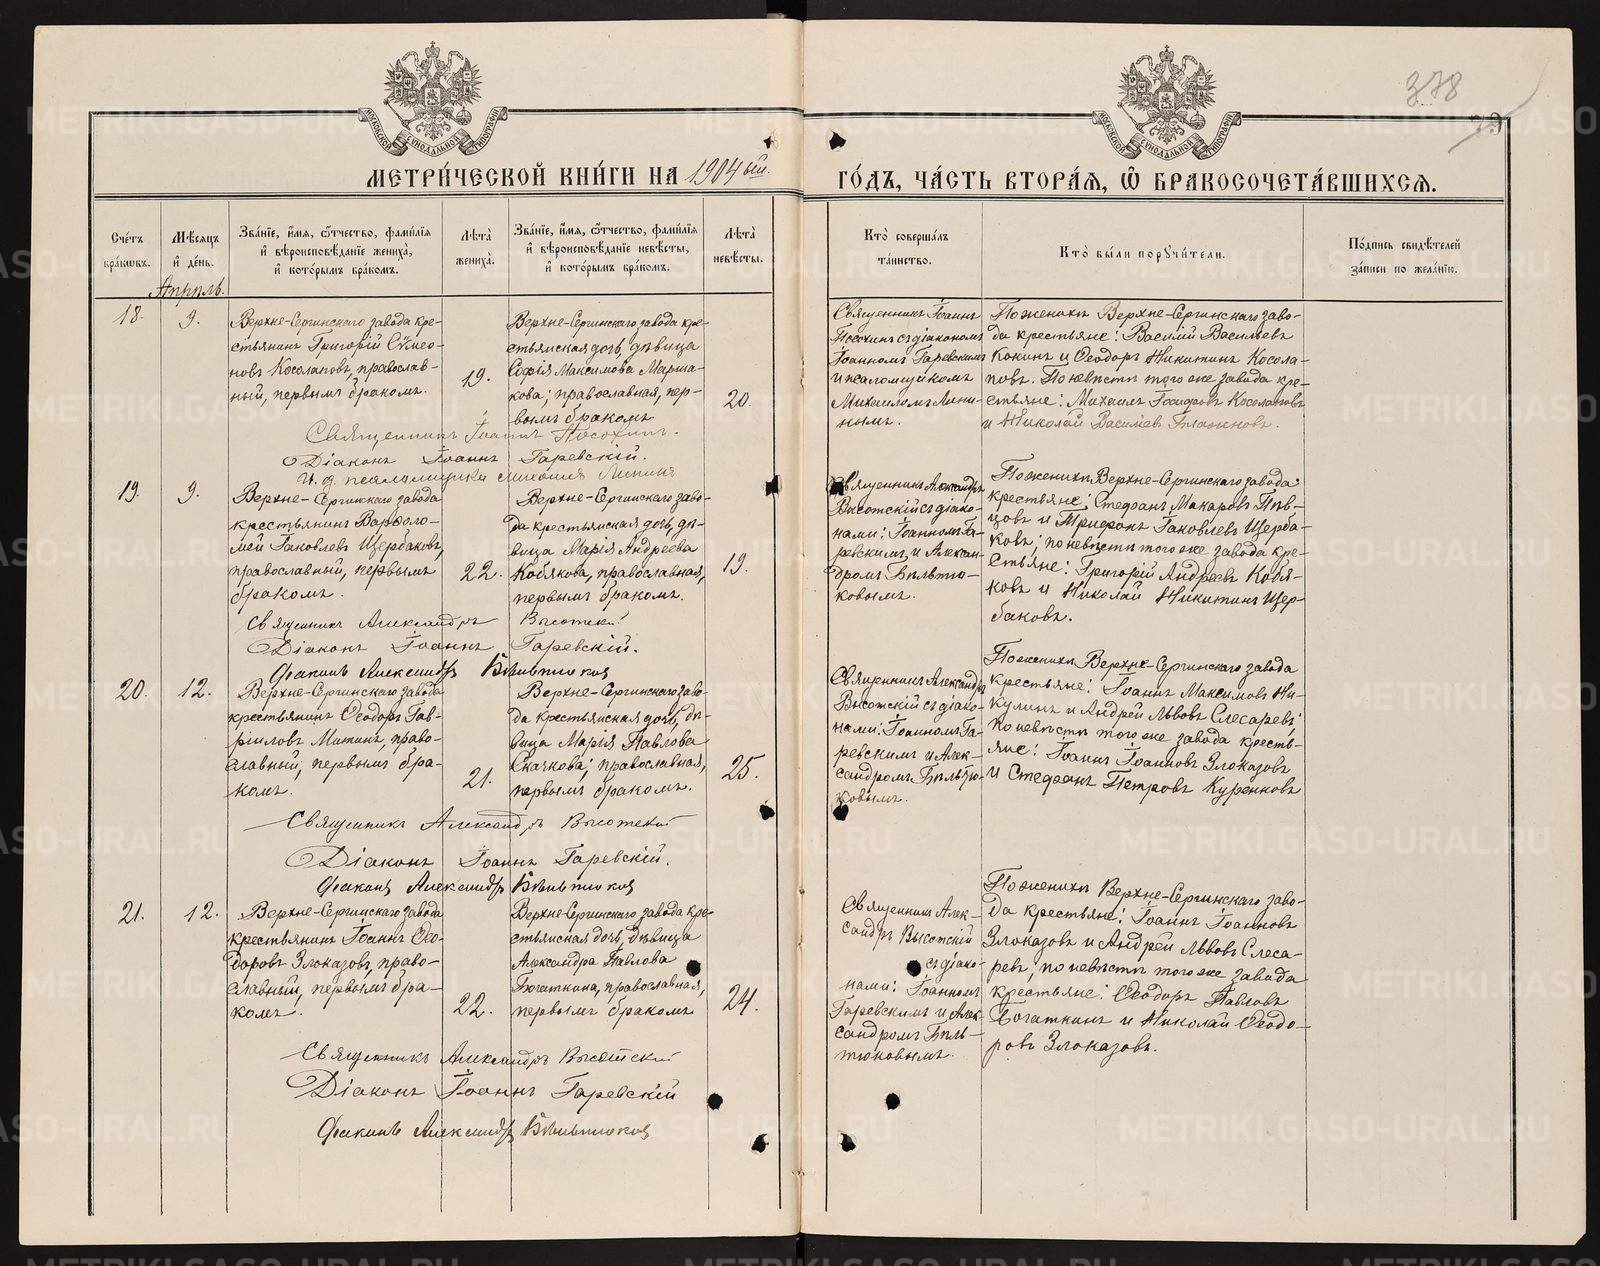 378
МОСКОВСКОЙ СѴНОДАЛЬНОЙ ТИПОГРАФІИ
МОСКОВСКОЙ СѴНОДАЛЬНОЙ ТИПОГРАФІИ
МЕТРИ́ЧЕСКОЙ КНИ́ГИ НА 1904ый.
ГО́ДЪ, ЧА́СТЬ ВТОРА́Ѧ, Ѽ БРАКОСОЧЕТА́ВШИХСѦ.
Сче́тъ бра́кѡвъ.
Мѣ́сѧцъ и҆ де́нь.
Зва́нїе, и҆́мѧ, ѻ҆́тчество, фами́лїѧ и҆ вѣроисповѣ́данїе жениха̀, и҆ кото́рымъ бра́комъ.
Лѣта̀ жениха̀.
Зва́нїе, и҆́мѧ, ѻ҆́тчество, фами́лїѧ и҆ вѣроисповѣ́данїе невѣ́сты, и҆ кото́рымъ бра́комъ.
Лѣта̀ невѣ́сты.
Кто̀ соверша́лъ та́инство.
Кто̀ бы́ли порꙋчи́тели.
По́дпись свидѣ́телей за́писи по жела́нїю.
Апрѣль.
18.
9.
Верхне-Сергинскаго завода кре-
стьянинъ Григорій Сѵмео-
новъ Косолаповъ, православ-
ный, первымъ бракомъ.
19.
Верхне-Сергинскаго завода кре-
стьянская дочь, дѣвица
Софія Максимова Марша-
кова; православная, пер-
вымъ бракомъ
20.
Священникъ Іоаннъ
Посохинъ съ діакономъ
Іоанномъ Гаревскимъ
и псаломщикомъ
Михаиломъ Липи-
нымъ.
По женихѣ Верхне-Сергинскаго заво-
да крестьяне: Василій Васильевъ
Кокинъ и Ѳеодоръ Никитинъ Косола-
повъ. По невѣстѣ того же завода кре-
стьяне: Михаилъ Косолаповъ
и Николай Васильевъ
Священникъ Іоаннъ Посохинъ.
Діаконъ Іоаннъ Гаревскій.
И. д. псаломщика Михаилъ Липинъ
19.
9.
Верхне-Сергинскаго завода
крестьянинъ Варѳоло-
мей Іаковлевъ Щербаковъ,
православный, первымъ
бракомъ.
22.
Верхне-Сергинскаго заво-
да крестьянская дочь, дѣ-
вица Марія Андреева
Кобякова, православная,
первымъ бракомъ.
19.
Священникъ Александръ
Высотскій съ діако-
нами: Іоанномъ Га-
ревскимъ и Алексан-
дромъ Бѣльтю-
ковымъ.
По женихѣ Верхне-Сергинскаго завода
крестьяне: Стефанъ Макаровъ Пѣв-
цовъ и Трифонъ Іаковлевъ Щерба-
ковъ; по невѣстѣ того же завода кре-
стьяне: Григорій Андреевъ Кобя-
ковъ и Николай Никитинъ Щер-
баковъ.
Священникъ Александръ Высотскій
Діаконъ Іоаннъ Гаревскій.
Діаконъ Александръ Бѣльтюковъ
20.
12.
Верхне-Сергинскаго завода
крестьянинъ Ѳеодоръ Гав-
рииловъ Мотинъ, право-
славный, первымъ бра-
комъ.
21.
Верхне-Сергинскаго заво-
да крестьянская дочь, дѣ-
вица Марія Павлова
Скачкова; православная,
первымъ бракомъ.
25.
Священникъ Александръ
Высотскій съ діако-
нами: Іоанномъ Га-
ревскимъ и Алек-
сандромъ Бѣльтю-
ковымъ.
По женихѣ Верхне-Сергинскаго завода
крестьяне: Іоаннъ Максимовъ Ни-
кулинъ и Андрей Львовъ Слесаревъ;
по невѣстѣ того же завода кресть-
яне: Іоаннъ Іоанновъ Злоказовъ
и Стефанъ Петровъ Куренковъ
Священникъ Александръ Высотскій
Діаконъ Іоаннъ Гаревскій.
Діаконъ Александръ Бѣльтюковъ
21.
12.
Верхне-Сергинскаго завода
крестьянинъ Іоаннъ Ѳео-
доровъ Злоказовъ, право-
славный, первымъ бра-
комъ.
22.
Верхне-Сергинскаго завода кре-
стьянская дочь, дѣвица
Александра Павлова
Богаткина, православная,
первымъ бракомъ
24.
Священникъ Алек-
сандръ Высотскій
съ діако-
нами: Іоанномъ
Гаревскимъ и Алек-
сандромъ Бѣль-
тюковымъ.
По женихѣ Верхне-Сергинскаго заво-
да крестьяне: Іоаннъ Іоанновъ
Злоказовъ и Андрей Львовъ Слеса-
ревъ; по невѣстѣ того же завода
крестьяне: Ѳеодоръ Павловъ
Богаткинъ и Николай Ѳеодо-
ровъ Злоказовъ.
Священникъ Александръ Высотскій
Діаконъ Іоаннъ Гаревскій
Діаконъ Александръ Бѣльтюковъ
METRIKI.GASO-URAL.RU